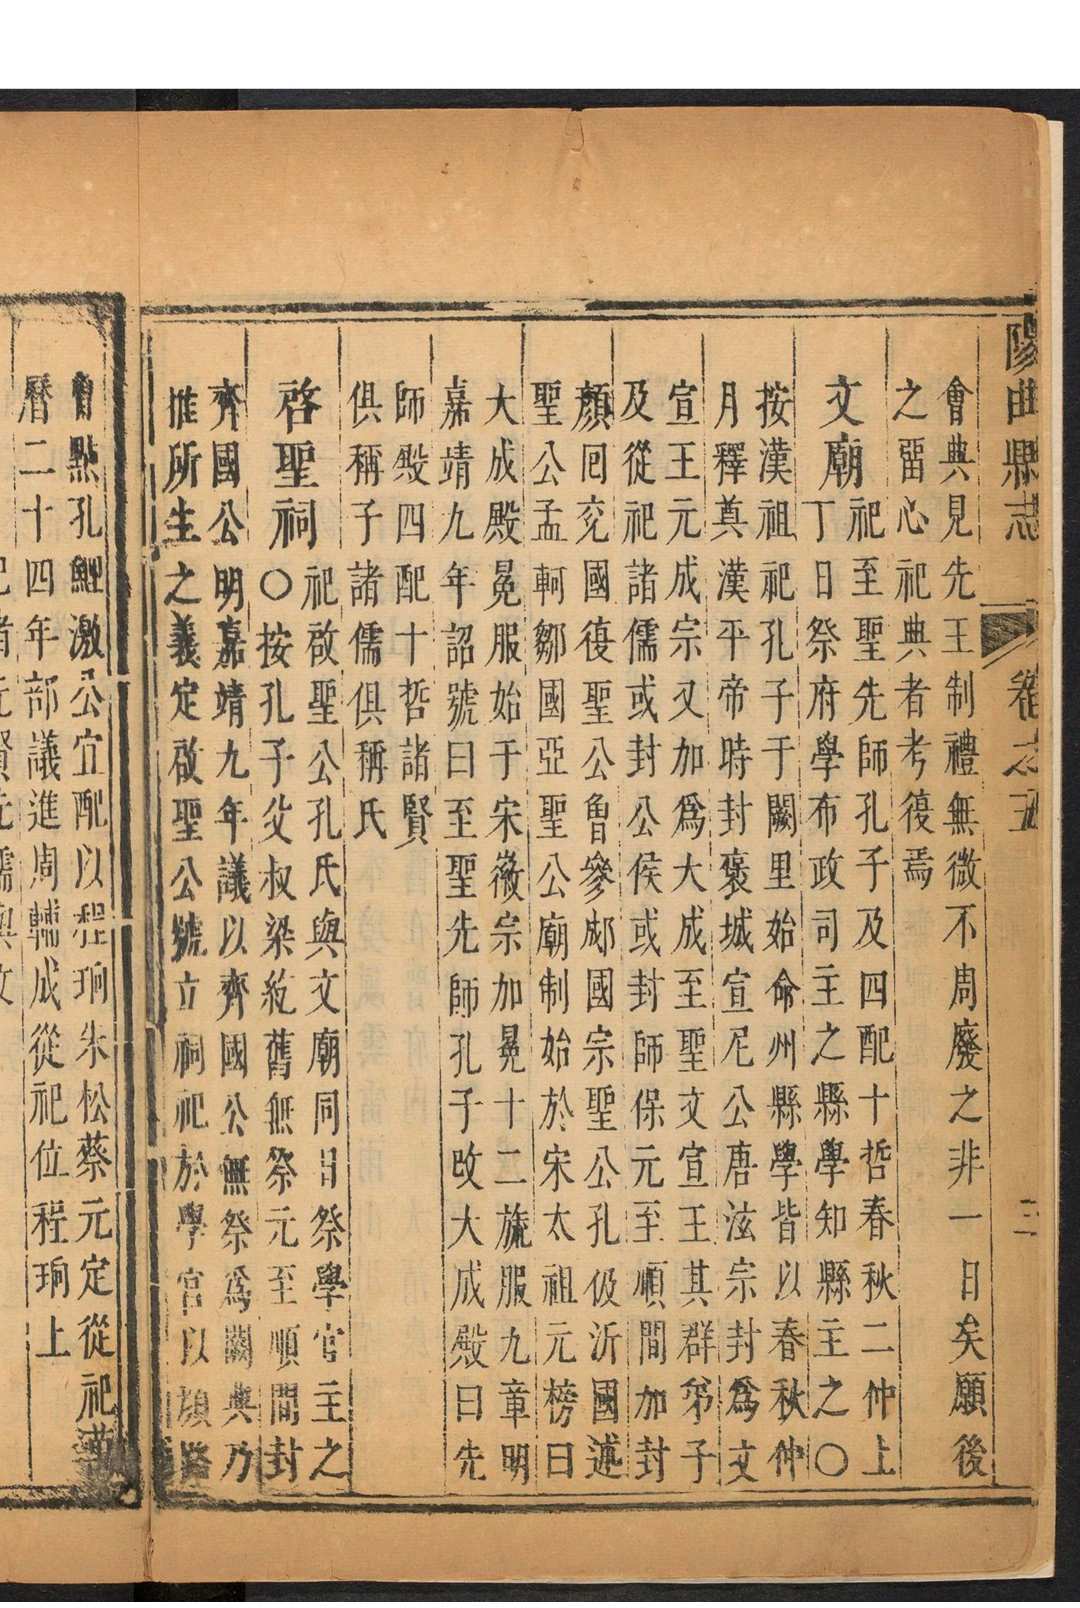 陽曲縣志 卷之五 三
會典見先王制禮無微不周廢之非一日矣願後
之畱心祀典者考復焉
文廟 祀至聖先師孔子及四配十哲春秋二仲上
丁日祭府學布政司主之縣學知縣主之○
按漢祖祀孔子于闕里始命州縣學皆以春秋仲
月釋奠漢平帝時封褒城宣尼公唐泫宗封爲文
宣王元成宗又加爲大成至聖文宣王其群弟子
及從祀諸儒或封公侯或封師保元至順間加封
顏回兖國復聖公魯參郕國宗聖公孔伋沂國述
聖公孟軻鄒國亞聖公廟制始於宋太祖元榜曰
大成殿冕服始于宋徽宗加冕十二旒服九章明
嘉靖九年詔號曰至聖先師孔子改大成殿曰先
師殿四配十哲諸賢
俱稱子諸儒俱稱氏
啓聖祠 祀啟聖公孔氏與文廟同日祭學官主之
○按孔子父叔梁紇舊無祭元至順間封
齊國公明嘉靖九年議以齊國公無祭爲闕典乃
推所生之義定啟聖公號立祠祀於學宮以顏路
曾點孔鯉激公宜配以程珦朱松蔡元定從祀萬
曆二十四年部議進周輔成從祀位程珦上
祀者先賢先儒與文